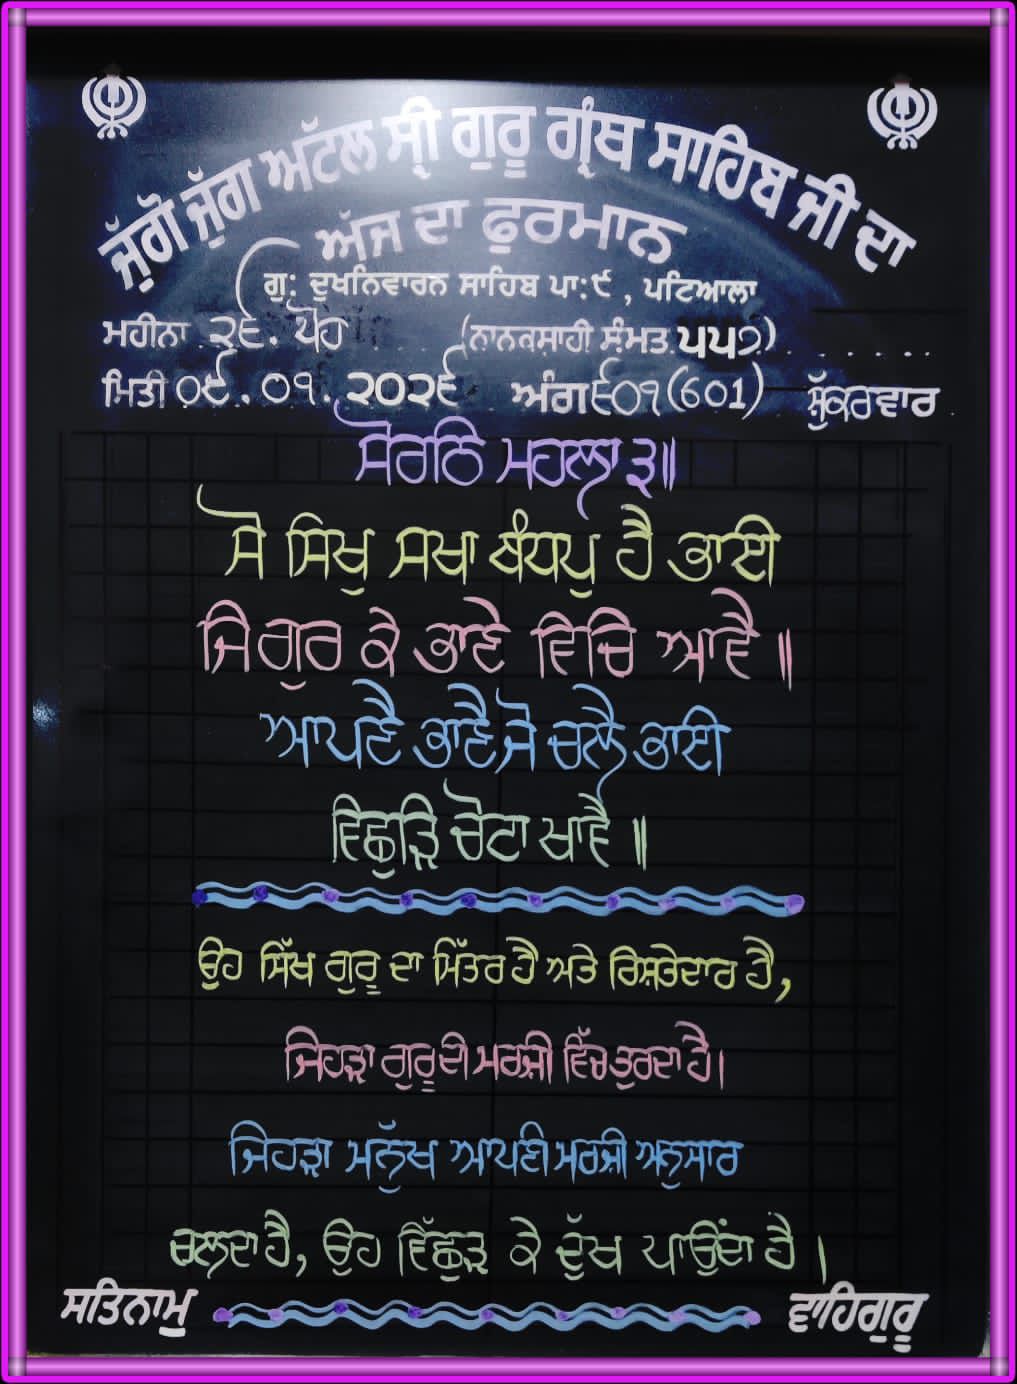 ਜੁੱਗੋ ਜੁੱਗ ਅਟੱਲ ਸ੍ਰੀ ਗੁਰੂ ਗ੍ਰੰਥ ਸਾਹਿਬ ਜੀ ਦਾ
ਅੱਜ ਦਾ ਫੁਰਮਾਨ
ਗੁ: ਦੁਖਨਿਵਾਰਨ ਸਾਹਿਬ ਪਾ:੯, ਪਟਿਆਲਾ
ਮਹੀਨਾ ੨੬. ਪੋਹ (ਨਾਨਕਸ਼ਾਹੀ ਸੰਮਤ ੫੫੭)
ਮਿਤੀ ੦੯.੦੧.੨੦੨੬ ਅੰਗ ੬੦੧ (601) ਸ਼ੁੱਕਰਵਾਰ
ਸੋਰਠਿ ਮਹਲਾ ੩॥
ਸੋ ਸਿਖੁ ਸਖਾ ਬੰਧਪੁ ਹੈ ਭਾਈ
ਜਿ ਗੁਰ ਕੇ ਭਾਣੇ ਵਿਚਿ ਆਵੈ ॥
ਆਪਣੈ ਭਾਣੈ ਜੋ ਚਲੈ ਭਾਈ
ਵਿਛੁੜਿ ਚੋਟਾ ਖਾਵੈ ॥
ਉਹ ਸਿੱਖ ਗੁਰੂ ਦਾ ਮਿੱਤਰ ਹੈ ਅਤੇ ਰਿਸ਼ਤੇਦਾਰ ਹੈ,
ਜਿਹੜਾ ਗੁਰੂ ਦੀ ਮਰਜ਼ੀ ਵਿੱਚ ਤੁਰਦਾ ਹੈ।
ਜਿਹੜਾ ਮਨੁੱਖ ਆਪਣੀ ਮਰਜ਼ੀ ਅਨੁਸਾਰ
ਚਲਦਾ ਹੈ, ਉਹ ਵਿੱਛੁੜ ਕੇ ਦੁੱਖ ਪਾਉਂਦਾ ਹੈ।
ਸਤਿਨਾਮੁ ਵਾਹਿਗੁਰੂ